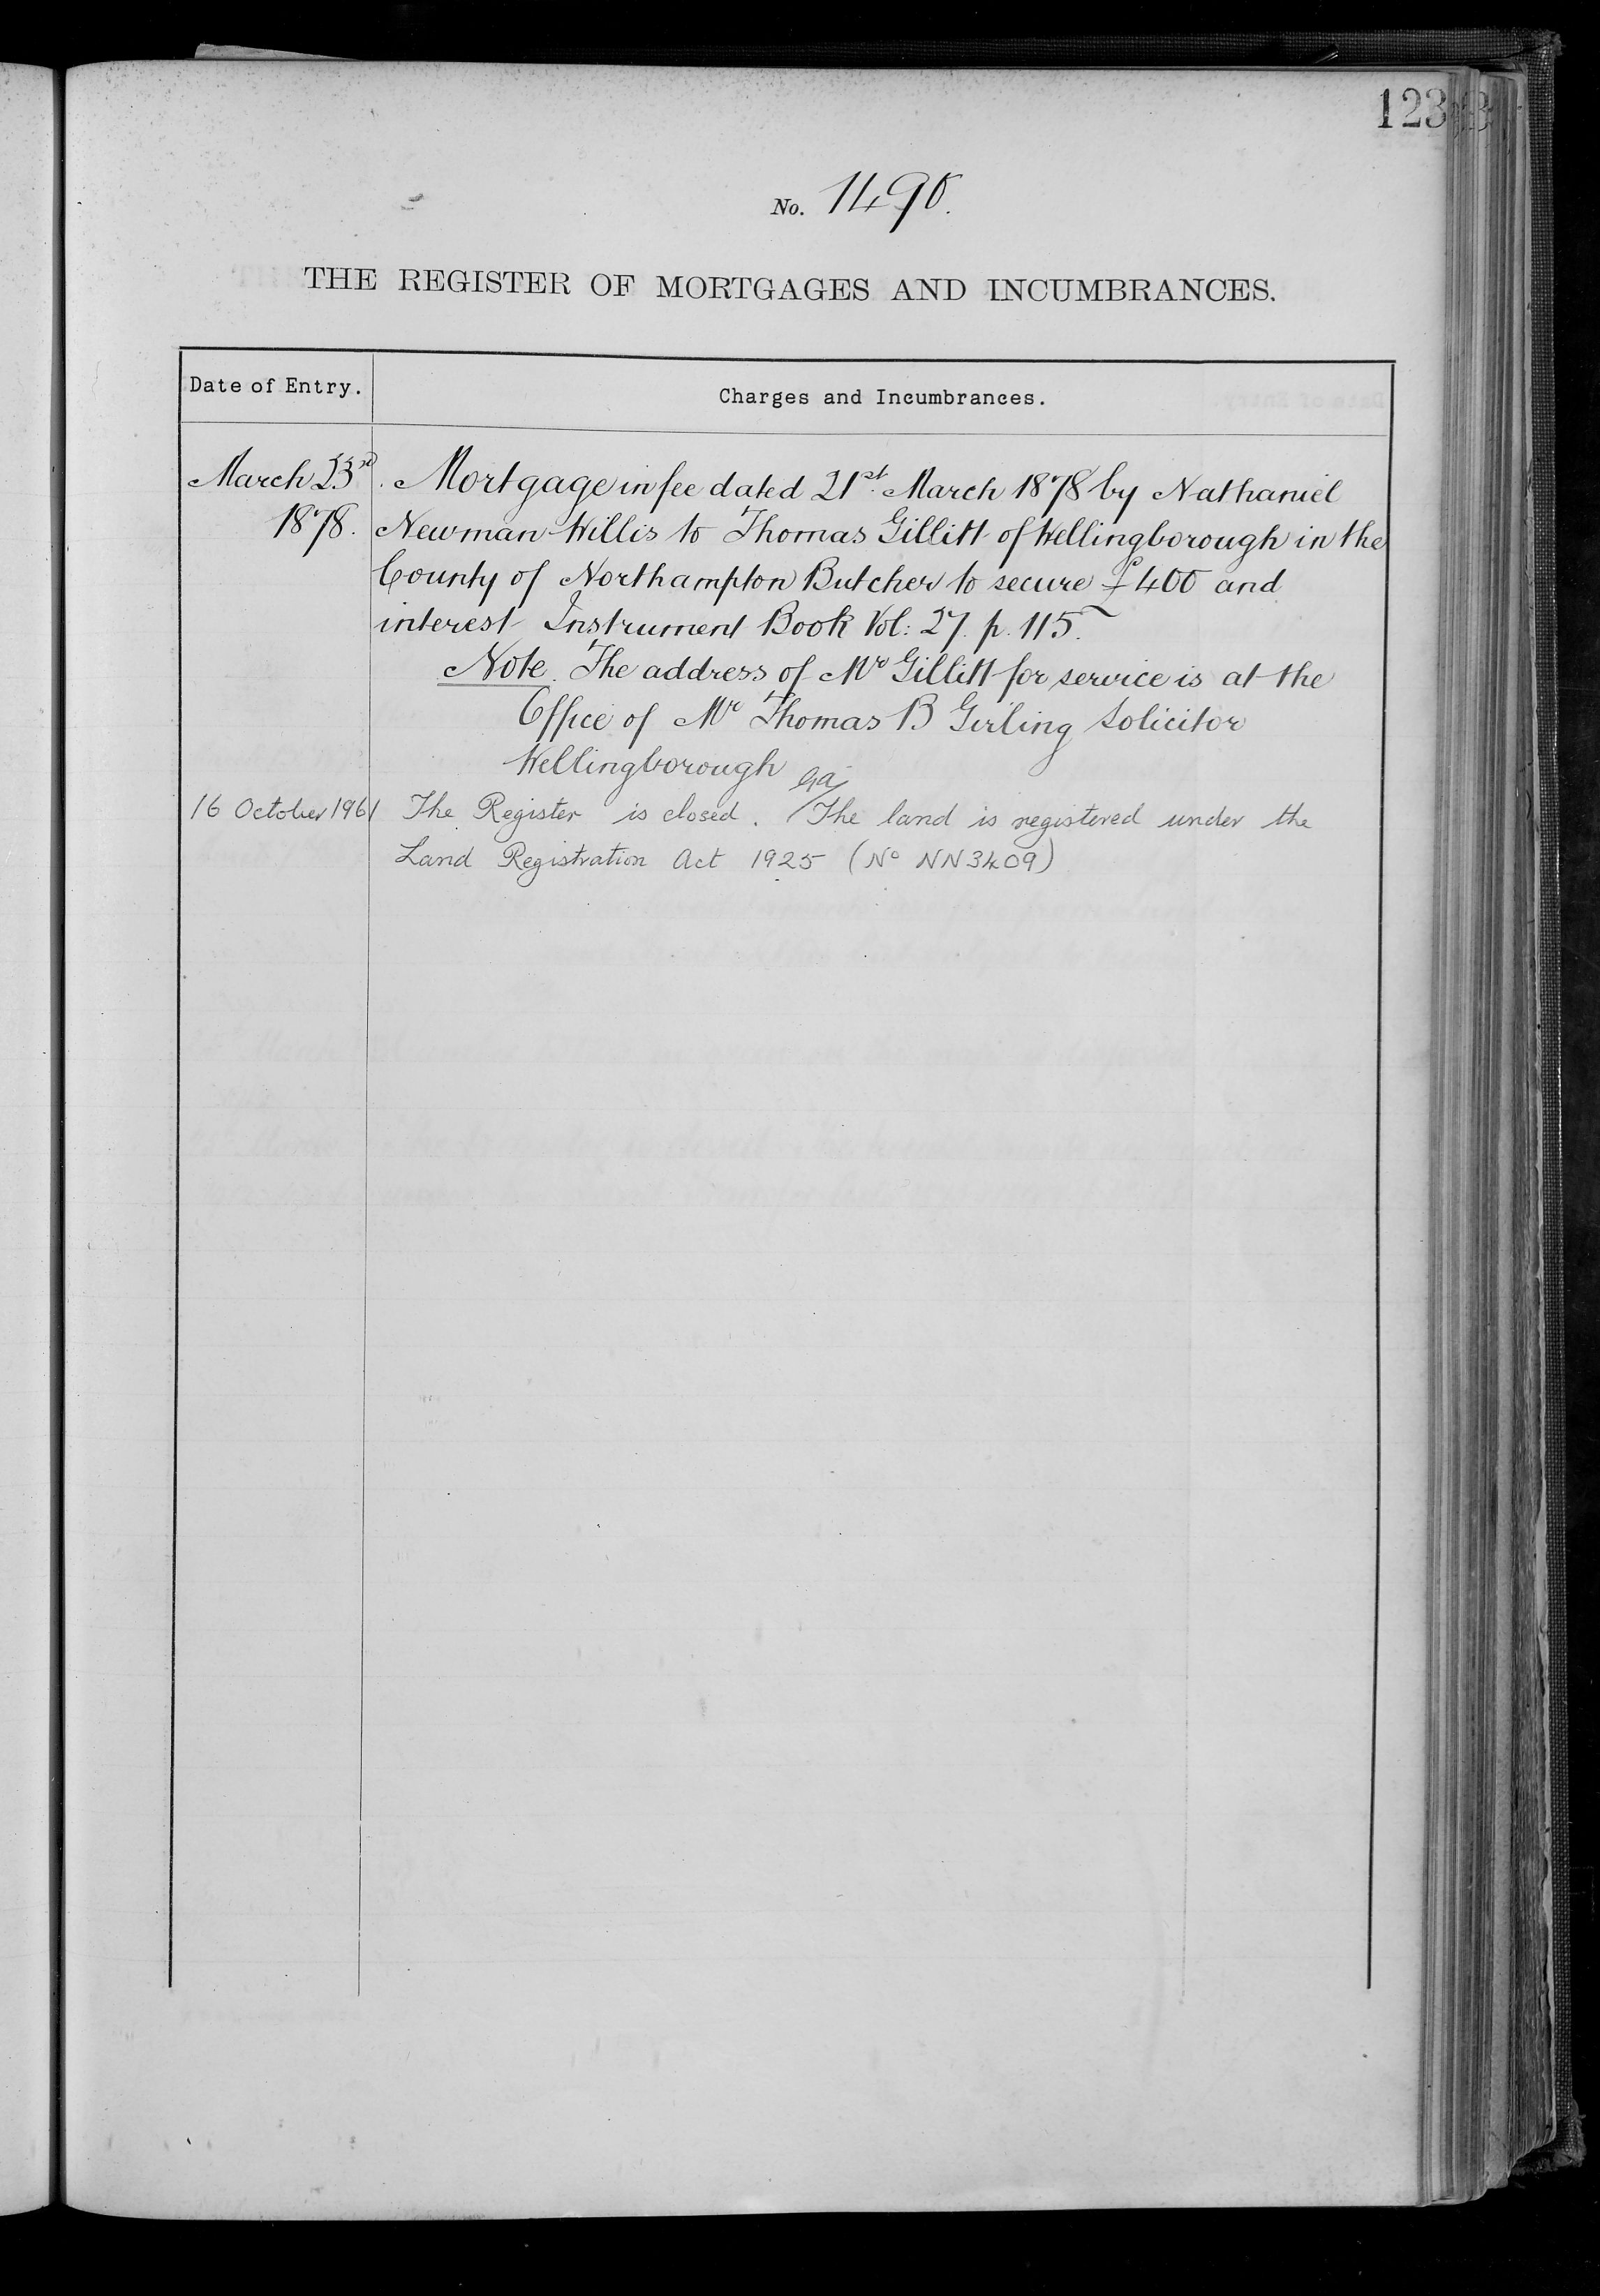 123
No. 1490.
THE REGISTER OF MORTGAGES AND INCUMBRANCES.
Date of Entry.
Charges and Incumbrances.
March 23rd 1878.
Mortgage in fee dated 21st March 1878 by Nathaniel
Newman Willis to Thomas Gillitt of Wellingborough in the
County of Northampton Butcher to secure £400 and
interest Instrument Book Vol: 27. p. 115.
Note. The address of Mr Gillitt for service is at the
Office of Mr Thomas B Girling Solicitor
Wellingborough
16 October 1961 The Register is closed. The land is registered under the
Land Registration Act 1925 (No NN3409)